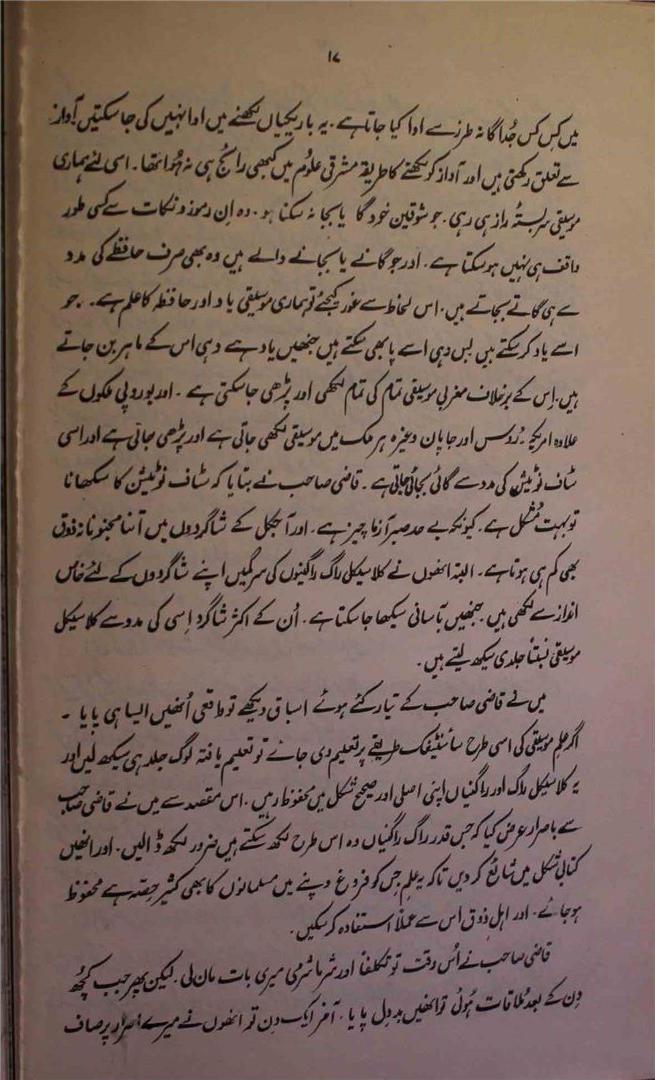 ۱۷
میں کِس کِس جُداگانہ طرز سے ادا کیا جاتا ہے۔ یہ باریکیاں لکھنے میں ادا نہیں کی جاسکتیں آواز
سے تعلق رکھتی ہیں اور آواز کو لکھنے کا طریقہ مشرقی علوُم میں کبھی رائج ہی نہ ہُوا تھا۔ اسی لئے ہماری
موسیقی سربستہ راز ہی رہی۔ جو شوقین خود گا یا بجا نہ سکتا ہو۔ وہ اِن رموز و نکات سے کسی طور
واقف ہی نہیں ہوسکتا ہے۔ اور جو گانے یا بجانے والے ہیں وہ بھی صرف حافظے کی مدد
سے ہی گاتے بجاتے ہیں۔ اس لحاظ سے غور کیجئے تو ہماری موسیقی یاد اور حافظہ کا علم ہے۔ جو
اسے یاد کرسکتے ہیں بس وہی اسے پا بھی سکتے ہیں جنھیں یاد ہے وہی اس کے ماہر بن جاتے
ہیں۔ اِس کے برخلاف مغربی موسیقی تمام کی تمام لکھی اور پڑھی جاسکتی ہے۔ اور یوروپی ملکوں کے
علاوہ امریکہ۔ رُوس اور جاپان وغیرہ ہر ملک میں موسیقی لکھی جاتی ہے اور پڑھی جاتی ہے اور اسی
سٹاف نوٹیشن کی مدد سے گائی بجائی جاتی ہے۔ قاضی صاحب نے بتایا کہ سٹاف نوٹیشن کا سکھانا
تو بہت مُشکل ہے۔ کیونکہ بے حد صبر آزما چیز ہے۔ اور آجکل کے شاگردوں میں اتنا مجنونانہ ذوق
بھی کم ہی ہوتا ہے۔ البتہ انھوں نے کلاسیکی راگ راگنیوں کی سرگمیں اپنے شاگردوں کے لئے خاص
انداز سے لکھی ہیں۔ جنھیں بآسانی سیکھا جاسکتا ہے۔ اُن کے اکثر شاگرد اِسی کی مدد سے کلاسیکل
موسیقی نسبتاً جلدی سیکھ لیتے ہیں۔
میں نے قاضی صاحب کے تیار کئے ہوئے اسباق دیکھے تو واقعی اُنھیں ایسا ہی پایا ۔
اگر علمِ موسیقی کی اسی طرح سائنٹیفک طریقے پر تعلیم دی جائے تو تعلیم یافتہ لوگ جلد ہی سیکھ لیں اور
یہ کلاسیکل راگ اور راگنیاں اپنی اصلی اور صحیح شکل میں محفوظ رہیں۔ اس مقصد سے میں نے قاضی صاحب
سے باصرار عرض کیا کہ جس قدر راگ راگنیاں وہ اس طرح لکھ سکتے ہیں ضرور لکھ ڈالیں۔ اور انھیں
کتابی شکل میں شائع کر دیں تاکہ یہ علم جس کو فروغ دینے میں مسلمانوں کا بھی کثیر حِصّہ ہے محفوظ
ہو جائے۔ اور اہلِ ذوق اس سے عملاً استفادہ کرسکیں۔
قاضی صاحب نے اُس وقت تو تکلفاً اور شرما شرمی میری بات مان لی۔ لیکن پھر جب کچھ
دِن کے بعد مُلاقات ہُوئی تو انھیں بددِل پایا۔ آخر ایک دِن تو انھوں نے میرے اصرار پر صاف